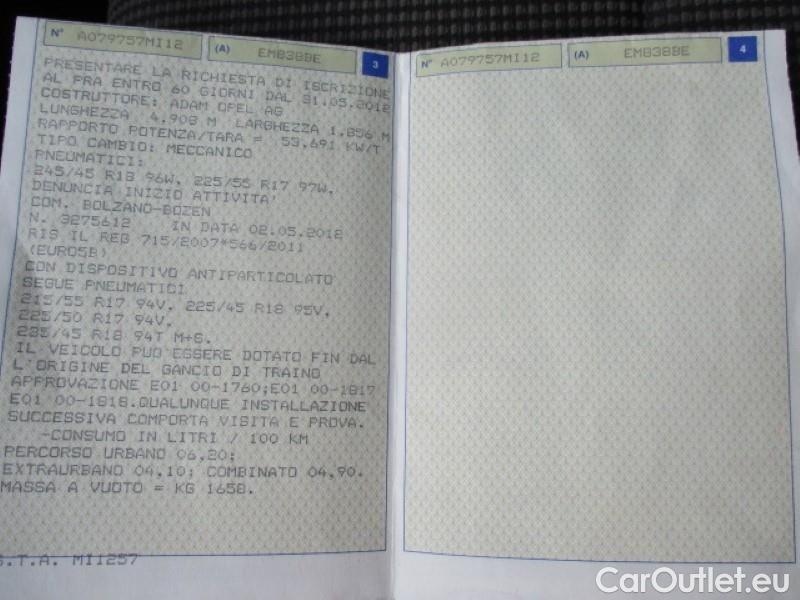 N° A079757MI12 (A) EM838BE 3
PRESENTARE LA RICHIESTA DI ISCRIZIONE
AL PRA ENTRO 60 GIORNI DAL 31.05.2012
COSTRUTTORE: ADAM OPEL AG
LUNGHEZZA 4,908 M LARGHEZZA 1,856 M
RAPPORTO POTENZA/TARA = 53,691 KW/T
TIPO CAMBIO: MECCANICO
PNEUMATICI:
245/45 R18 96W, 225/55 R17 97W,
DENUNCIA INIZIO ATTIVITA'
COM. BOLZANO-BOZEN
N. 3275612 IN DATA 02.05.2012
RIS IL REG 715/2007*566/2011
(EURO5B)
CON DISPOSITIVO ANTIPARTICOLATO
SEGUE PNEUMATICI
215/55 R17 94V, 225/45 R18 95V,
225/50 R17 94V,
235/45 R18 94T M+S.
IL VEICOLO PUO'ESSERE DOTATO FIN DAL
L'ORIGINE DEL GANCIO DI TRAINO
APPROVAZIONE E01 00-1760;E01 00-1817
E01 00-1818.QUALUNQUE INSTALLAZIONE
SUCCESSIVA COMPORTA VISITA E PROVA.
-CONSUMO IN LITRI / 100 KM
PERCORSO URBANO 06,20;
EXTRAURBANO 04,10; COMBINATO 04,90.
MASSA A VUOTO = KG 1658.
S.T.A. MI1257
N° A079757MI12 (A) EM838BE 4
CarOutlet.eu